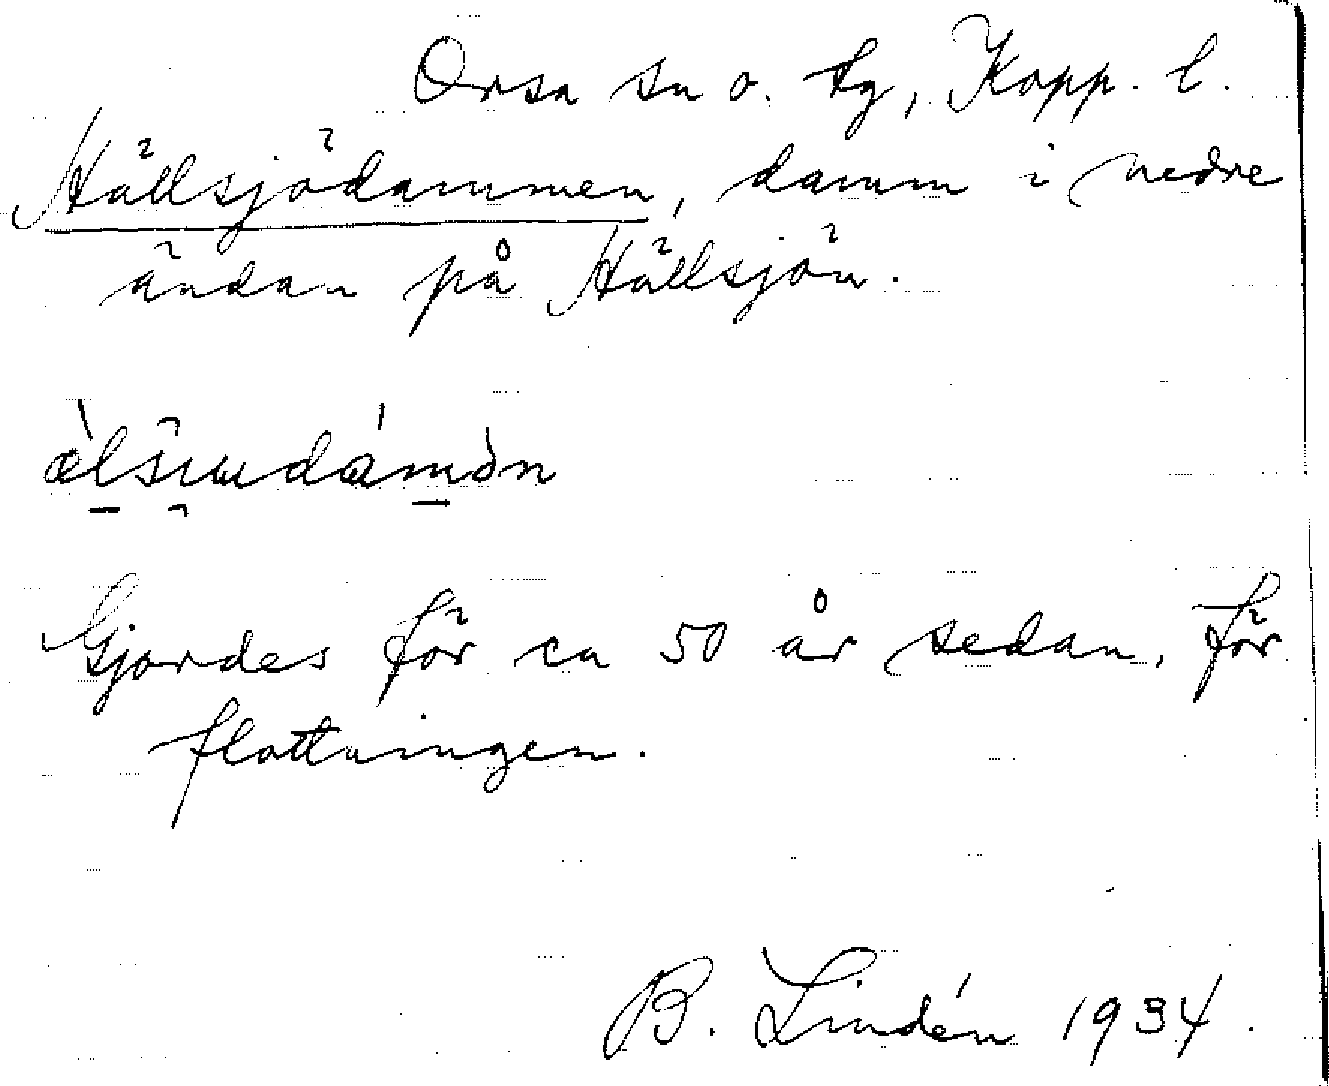 Orsa sn o. tg, Kopp. l.
Hällsjödammen, damm i nedre
ändan på Hällsjön.
Gjordes för ca 50 år sedan, för
flottningen.
B. Lindén 1934.